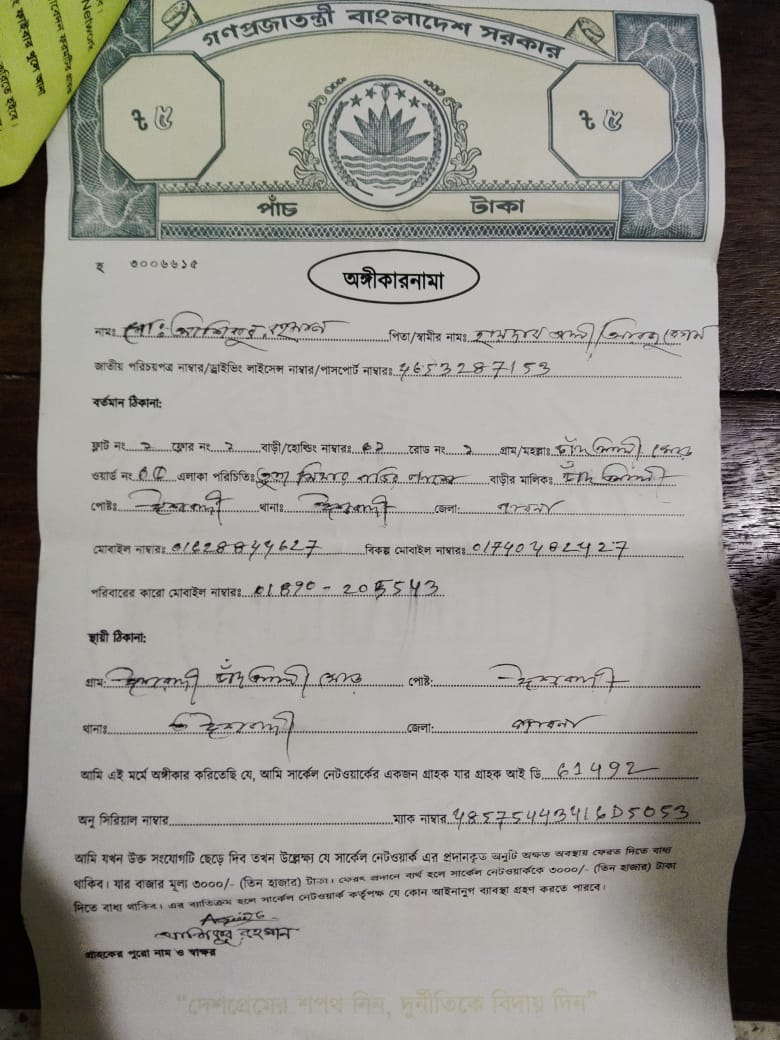 Network
গণপ্রজাতন্ত্রী বাংলাদেশ সরকার
৳ ৫ ৳ ৫
পাঁচ টাকা
হ ৩০০৬৬১৫
অঙ্গীকারনামা
নামঃ মোঃ আশিকুর রহমান পিতা/স্বামীর নামঃ
জাতীয় পরিচয়পত্র নাম্বার/ড্রাইভিং লাইসেন্স নাম্বার/পাসপোর্ট নাম্বারঃ 4653287153
বর্তমান ঠিকানা:
ফ্লাট নং ২ ফ্লোর নং ২ বাড়ী/হোল্ডিং নাম্বারঃ রোড নং ২ গ্রাম/মহল্লাঃ চাঁদ আলী মোড়
ওয়ার্ড নং এলাকা পরিচিতিঃ বাড়ীর মালিকঃ চাঁদ আলী
পোষ্টঃ ঈশ্বরদী থানাঃ ঈশ্বরদী জেলা: পাবনা
মোবাইল নাম্বারঃ 01628844627 বিকল্প মোবাইল নাম্বারঃ 01740482427
পরিবারের কারো মোবাইল নাম্বারঃ 01890-205543
স্থায়ী ঠিকানা:
গ্রাম: ঈশ্বরদী চাঁদ আলী মোড় পোষ্ট: ঈশ্বরদী
থানাঃ ঈশ্বরদী জেলা: পাবনা
আমি এই মর্মে অঙ্গীকার করিতেছি যে, আমি সার্কেল নেটওয়ার্কের একজন গ্রাহক যার গ্রাহক আই ডি 61492
অনু সিরিয়াল নাম্বার ম্যাক নাম্বার 48575443416D5053
আমি যখন উক্ত সংযোগটি ছেড়ে দিব তখন উল্লেক্ষ্য যে সার্কেল নেটওয়ার্ক এর প্রদানকৃত অনুটি অক্ষত অবস্থায় ফেরত দিতে বাধ্য
থাকিব। যার বাজার মূল্য ৩০০০/- (তিন হাজার) টাকা। ফেরৎ প্রদানে ব্যর্থ হলে সার্কেল নেটওয়ার্ককে ৩০০০/- (তিন হাজার) টাকা
দিতে বাধ্য থাকিব। এর ব্যতিক্রম হলে সার্কেল নেটওয়ার্ক কর্তৃপক্ষ যে কোন আইনানুগ ব্যবস্থা গ্রহণ করতে পারবে।
আশিকুর রহমান
গ্রাহকের পুরো নাম ও স্বাক্ষর
“দেশপ্রেমের শপথ নিন, দুর্নীতিকে বিদায় দিন”